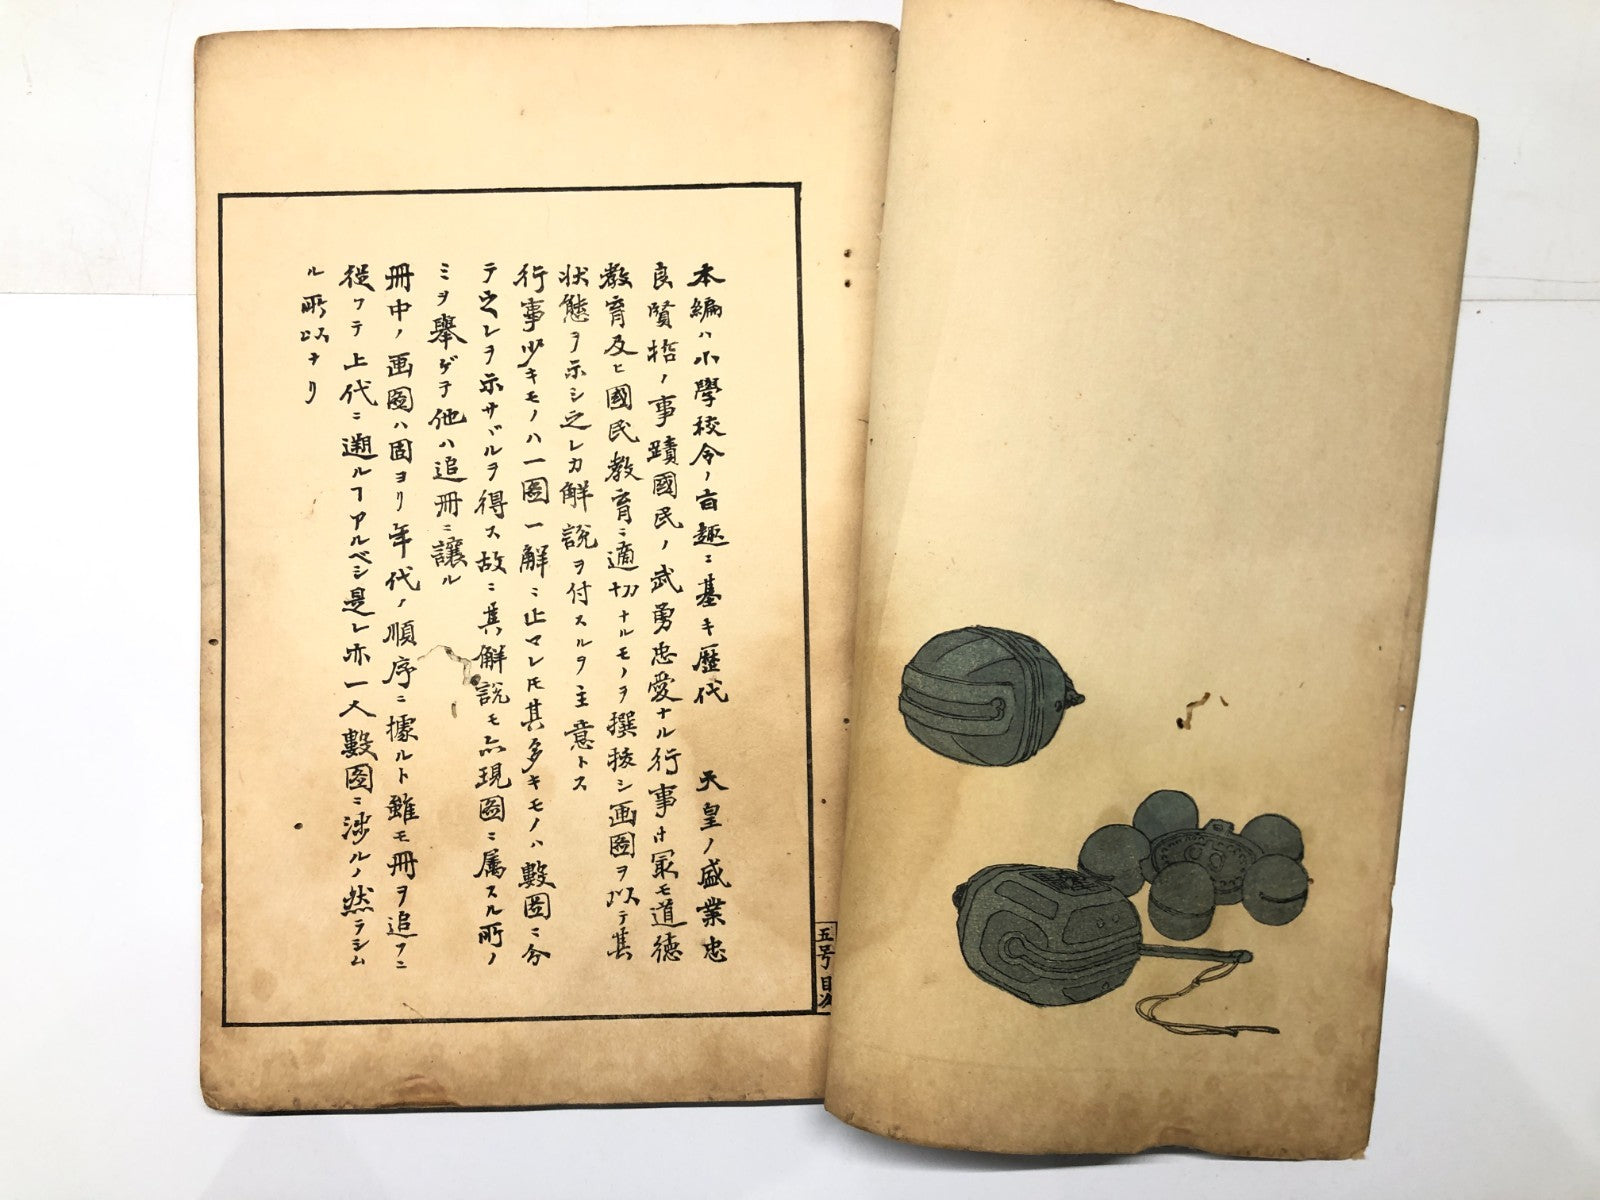 本編ハ小學校令ノ旨趣ニ基キ歷代　天皇ノ盛業忠
良賢哲ノ事蹟國民ノ武勇忠愛ナル行事中最モ道德
教育及ヒ國民教育ニ適切ナルモノヲ撰拔シ画圖ヲ以テ其
状態ヲ示シ之レカ解說ヲ付スルヲ主意トス
行事少キモノハ一圖一解ニ止マレ𪜈其多キモノハ數圖ニ分
テ之レヲ示サヾルヲ得ス故ニ其解説モ亦現圖ニ属スル所ノ
ミヲ舉ゲテ他ハ追冊ニ讓ル
冊中ノ画圖ハ固ヨリ年代ノ順序ニ據ルト雖モ冊ヲ追フニ
從フテ上代ニ遡ルヿアルベシ是レ亦一人數圖ニ涉ルノ然ラシム
ル所以ナリ
五号目次